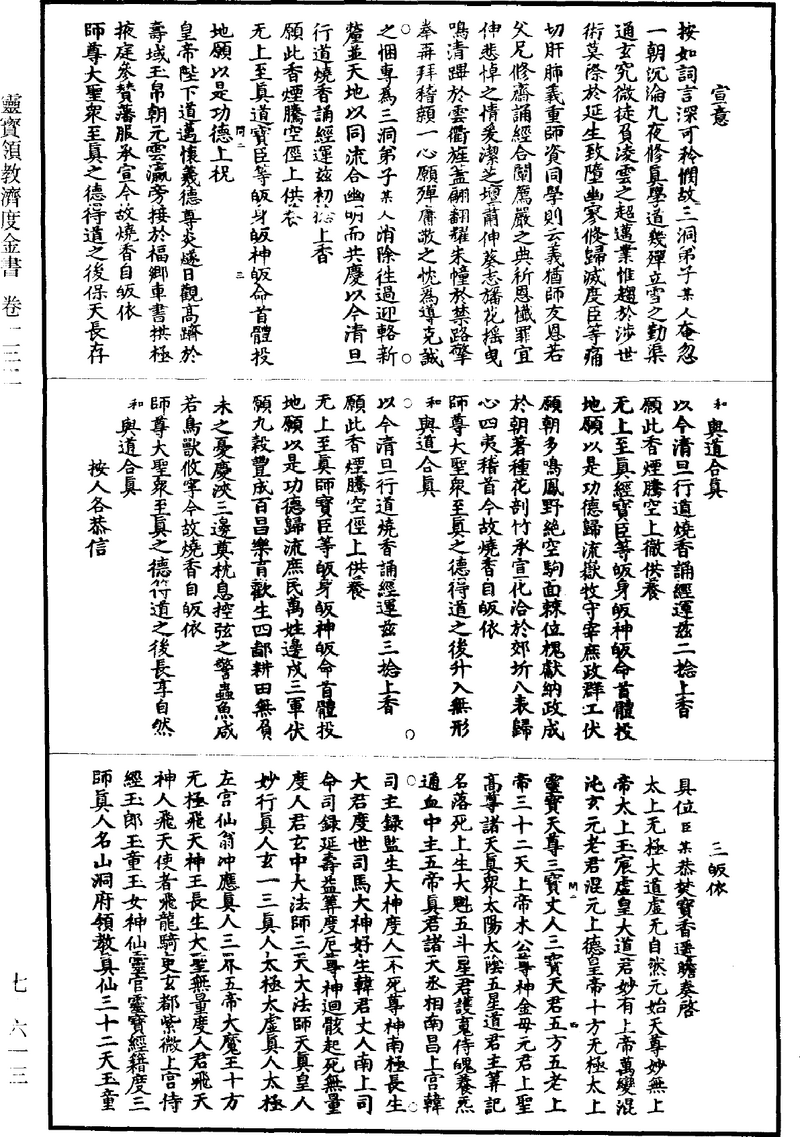 靈寶領教濟度金書 卷二三二
七 六一三
宣意
按如詞言深可矜憫故三洞弟子某人奄忽
一朝沉淪九夜修真學道幾殫立雪之勤渠
通玄究微徒負凌雲之超邁業惟趨於涉世
術莫際於延生致墮幽冥倏歸滅度臣等痛
切肝肺義重師資同學則云義猶師友恩若
父兄修齋誦經合闡薦嚴之典祈恩懺罪宜
伸悲悼之情爰潔芝壇肅伸葵志旛花搖曳
鳴清蹕於雲衢旌蓋翩翻耀朱幢於禁路擎
拳再拜稽顙一心願殫肅敬之忱為導克誠
之悃專為三洞弟子某人消除往過迎輅新
釐並天地以同流合幽明而共慶以今清旦
行道燒香誦經運茲初捻上香
願此香煙騰空徑上供養
无上至真道寶臣等皈身皈神皈命首體投
地願以是功德上祝
皇帝陛下道邁懷羲德尊炎燧日觀高躋於
壽域玉帛朝元雲瀛旁接於福鄉車書拱極
掖庭參贊藩服承宣今故燒香自皈依
師尊大聖衆至真之德得道之後保天長存
和 與道合真
以今清旦行道燒香誦經運茲二捻上香
願此香煙騰空上徹供養
无上至真經寶臣等皈身皈神皈命首體投
地願以是功德歸流嶽牧守宰庶政群工伏
願朝多鳴鳳野絶空駒面棘位槐獻納政成
於朝著種花剖竹承宣化洽於郊圻八表歸
心四夷稽首今故燒香自皈依
師尊大聖衆至真之德得道之後升入無形
和 與道合真
以今清旦行道燒香誦經運茲三捻上香
願此香煙騰空徑上供養
无上至真師寶臣等皈身皈神皈命首體投
地願以是功德歸流庶民萬姓邊戍三軍伏
願九穀豐成百昌樂育歡生四鄙耕田無負
耒之憂慶浹三邊奠枕息控弦之警蟲魚咸
若鳥獸攸寧今故燒香自皈依
師尊大聖衆至真之德得道之後長享自然
和 與道合真
按人各恭信
三皈依
具位臣某恭焚寶香遥瞻奏啓
太上无極大道虛无自然元始天尊妙無上
帝太上玉宸虛皇大道君妙有上帝萬變混
沌玄元老君混元上德皇帝十方无極太上
靈寶天尊三寶丈人三寶天君五方五老上
帝三十二天上帝木公尊神金母元君上聖
高尊諸天真衆太陽太陰五星道君主筭記
名落死上生大魁五斗星君護䰟侍魄養炁
通血中主五帝真君諸天丞相南昌上宮韓
司主録監生大神度人不死尊神南極長生
大君度世司馬大神好生韓君丈人南上司
命司録延壽益筭度厄尊神迴骸起死無量
度人君玄中大法師三天大法師天真皇人
妙行真人玄一三真人太極太虛真人太極
左宮仙翁冲應真人三界五帝大魔王十方
无極飛天神王長生大聖無量度人君飛天
神人飛天使者飛龍騎吏玄都紫微上宮侍
經玉郎玉童玉女神仙靈官靈寶經籍度三
師真人名山洞府領教真仙三十二天玉童